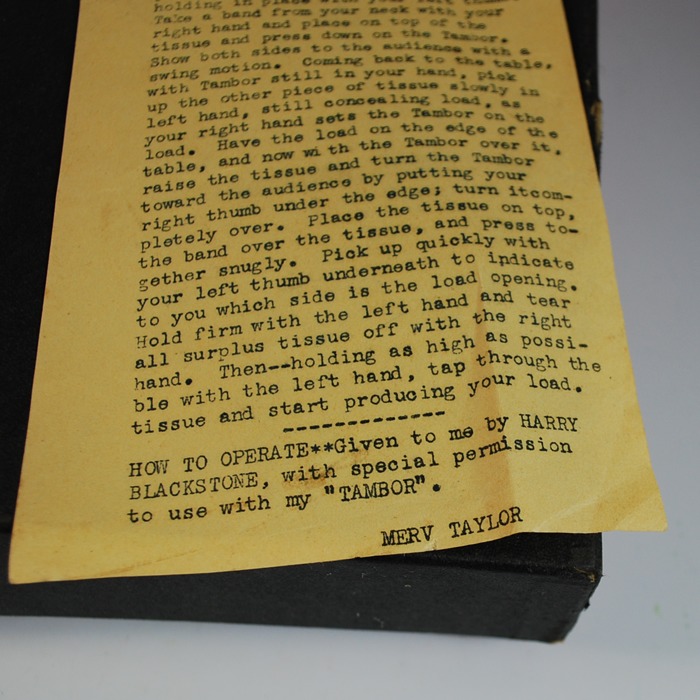 holding in place with your left
Take a band from your neck with your
right hand and place on top of the
tissue and press down on the Tambor.
Show both sides to the audience with a
swing motion. Coming back to the table,
with Tambor still in your hand, pick
up the other piece of tissue slowly in
left hand, still concealing load, as
your right hand sets the Tambor on the
load. Have the load on the edge of the
table, and now with the Tambor over it,
raise the tissue and turn the Tambor
toward the audience by putting your
right thumb under the edge; turn itcom-
pletely over. Place the tissue on top,
the band over the tissue, and press to-
gether snugly. Pick up quickly with
your left thumb underneath to indicate
to you which side is the load opening.
Hold firm with the left hand and tear
all surplus tissue off with the right
hand. Then--holding as high as possi-
ble with the left hand, tap through the
tissue and start producing your load.
-------------
HOW TO OPERATE**Given to me by HARRY
BLACKSTONE, with special permission
to use with my "TAMBOR".
MERV TAYLOR